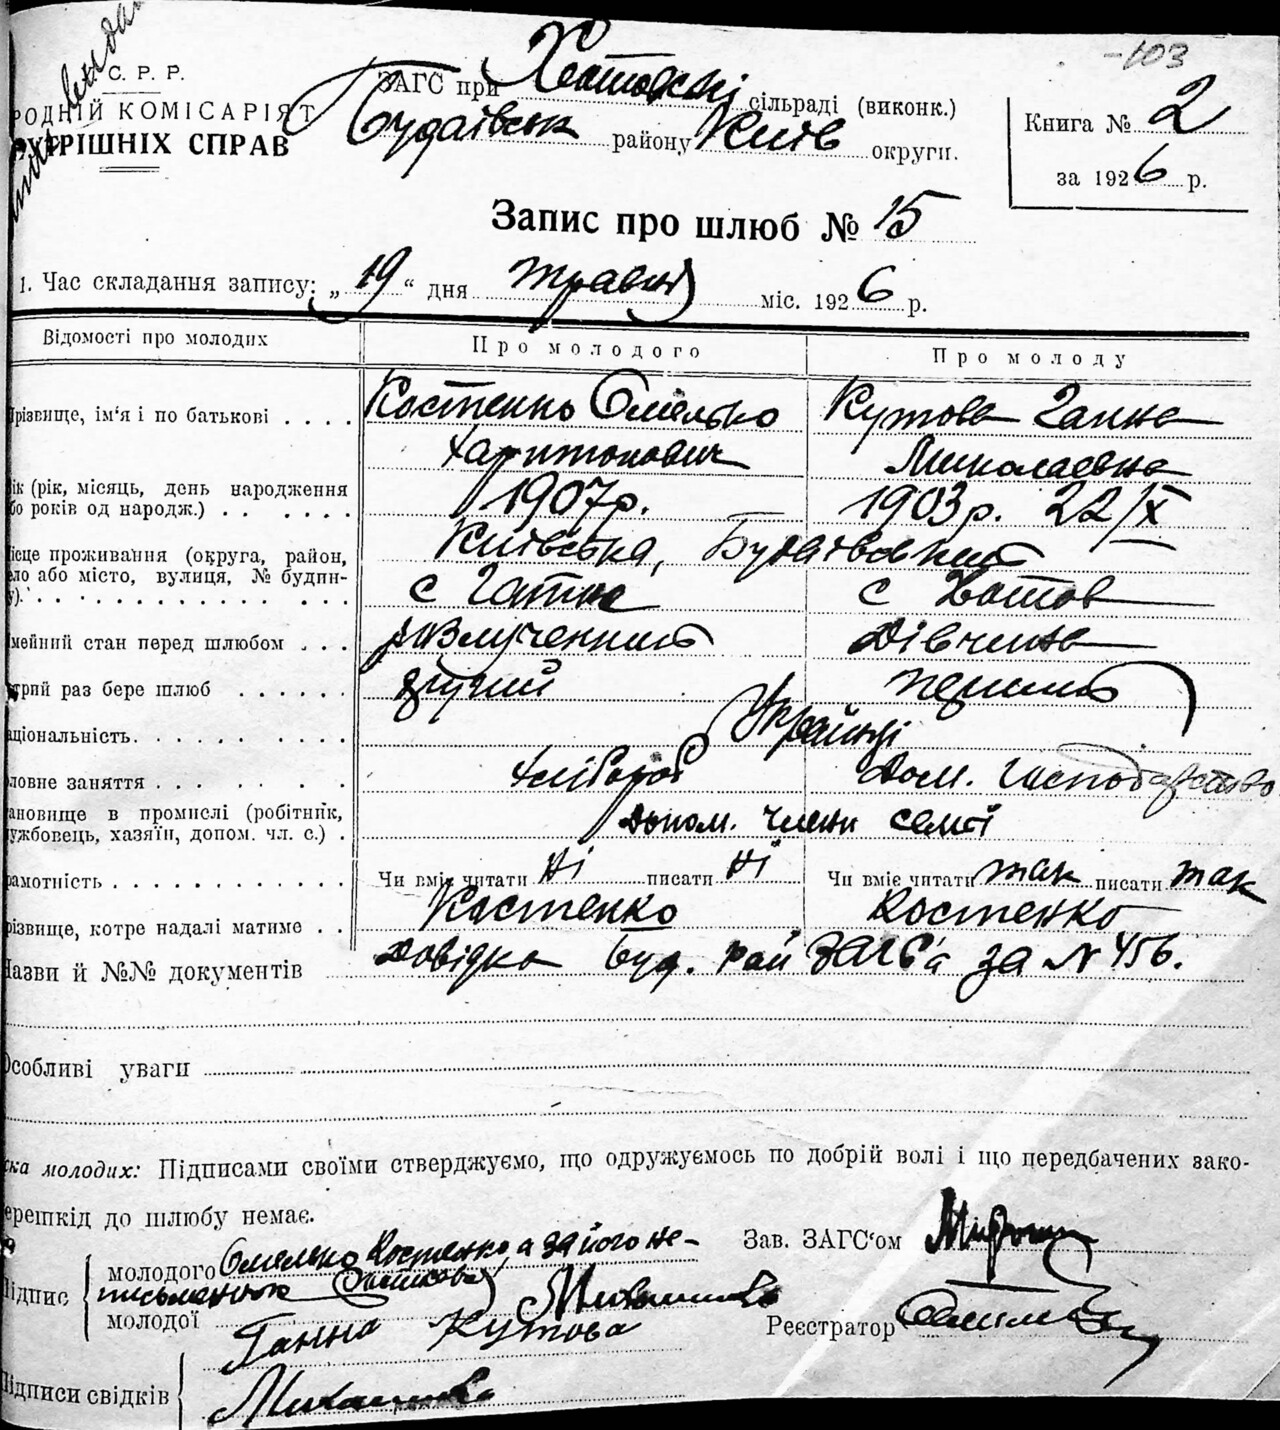 -103
С. Р. Р.
РОДНІЙ КОМІСАРІЯТ
УТРІШНІХ СПРАВ
ЗАГС при Хотовскі сільраді (виконк.)
Будаівськ району Київ округи.
Книга № 2
за 1926 р.
Запис про шлюб № 15
1. Час складання запису: „19“ дня травня міс. 1926 р.
Відомості про молодих Про молодого Про молоду
Прізвище, ім'я і по батькові . . . . Костенко Омелько Кутова Ганна
Харитонович Миколаевна
ік (рік, місяць, день народження
бо років од народж.) . . . . . . 1907р. 1903р. 22/X
ісце проживання (округа, район, Київська, Будаівский
ло або місто, вулиця, № будин-
у). . . . . . . . . . . . . . . . с Гатне с Хотов
мейний стан перед шлюбом . . . розлученний дівчина
трий раз бере шлюб . . . . . . другий перший
аціональність. . . . . . . . . . Українці
ловне заняття . . . . . . . . . хлібороб Дом. Господарство
ановище в промислі (робітник,
ужбовець, хазяїн, допом. чл. с.) . Допом. члени семї
рамотність . . . . . . . . . . . . Чи вміє читати ні писати ні Чи вміє читати так писати так
різвище, котре надалі матиме . . Костенко Костенко
Назви й №№ документів Довідка Буд. Рай ЗАГС'а за N 456.
Особливі уваги
ска молодих: Підписами своїми стверджуємо, що одружуємось по добрій волі і що передбачених зако-
ерешкід до шлюбу немає.
Підпис молодого Омелько Костенко, а за його не-
письменного
молодої Ганна Кутова
Зав. ЗАГС'ом
Реєстратор
Підписи свідків